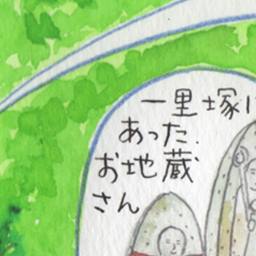 一里塚に
あった
お地蔵
さん